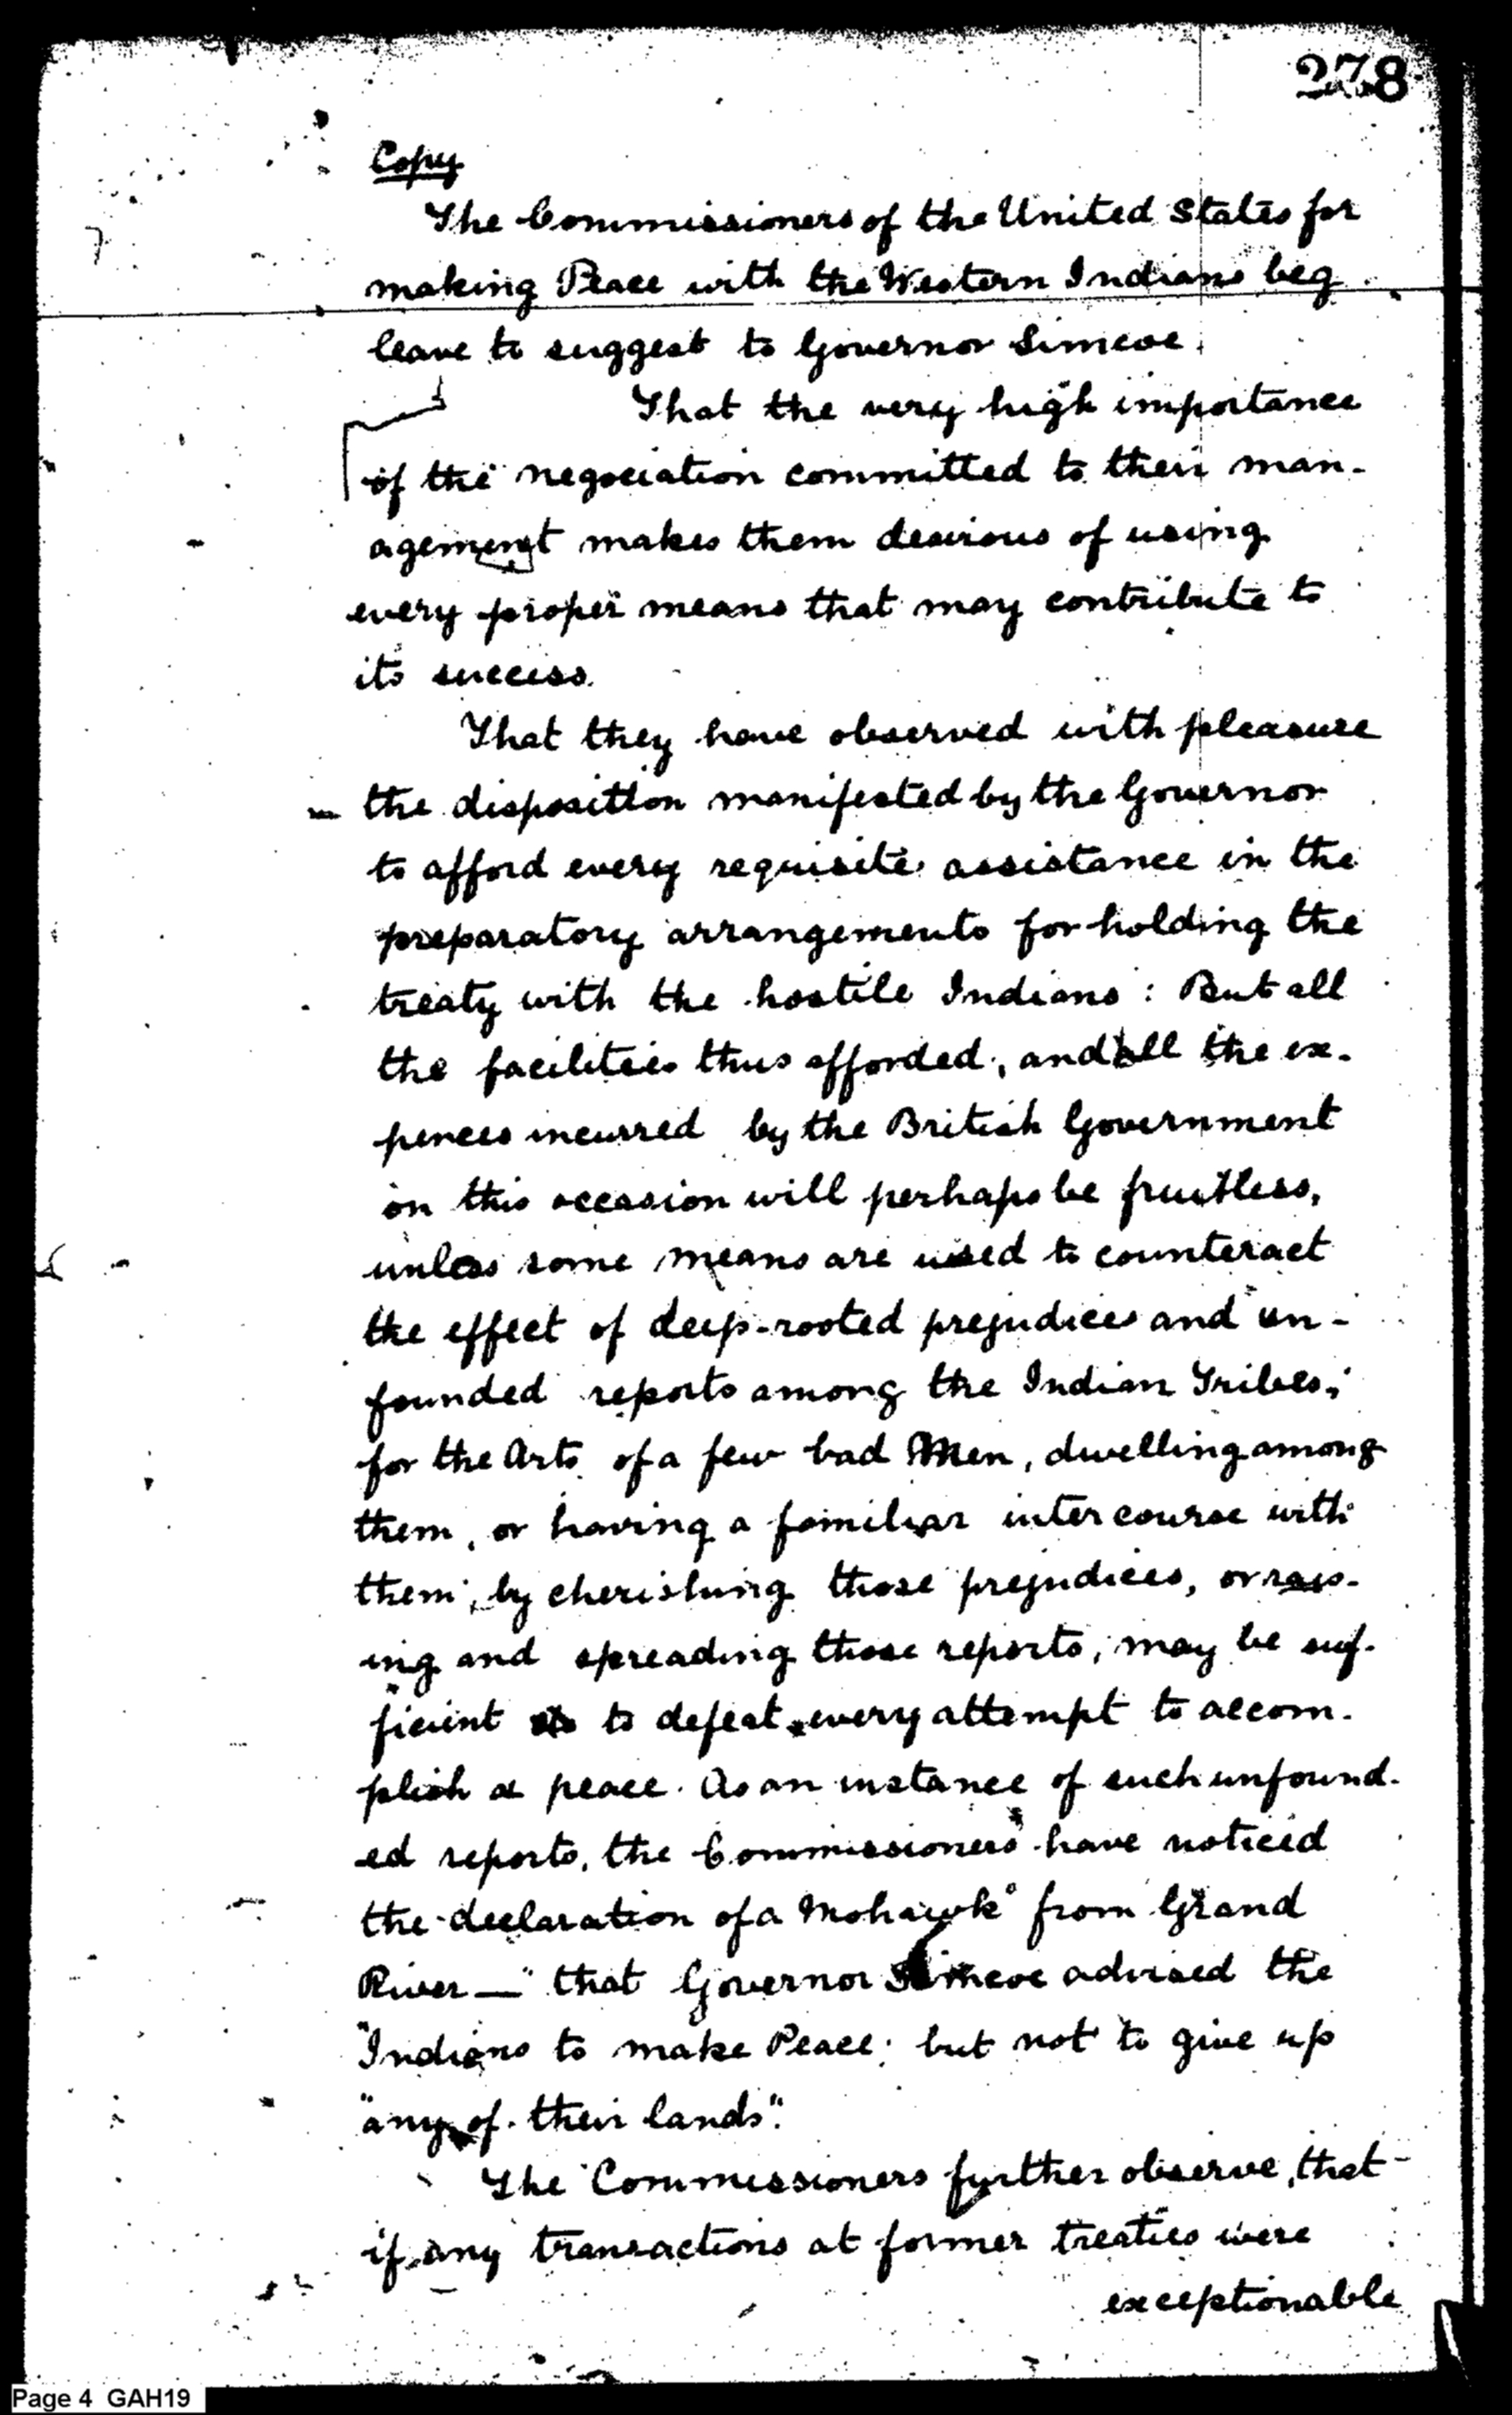 278
Copy
The Commissioners of the United States for
making Peace with the Western Indians beg
leave to suggest to Governor Simcoe.
That the very high importance
of the negociation committed to their man-
agement makes them desirous of using
every proper means that may contribute to
its success.
That they have observed with pleasure
the disposition manifested by the Governor
to afford every requisite assistance in the
preparatory arrangements for holding the
treaty with the hostile Indians: But all
the facilities thus afforded, and all the ex-
pences incurred by the British Government
on this occasion will perhaps be fruitless,
unless some means are used to counteract
the effect of deep-rooted prejudices and un-
founded reports among the Indian Tribes;
for the Arts of a few bad Men, dwelling among
them, or having a familiar intercourse with
them, by cherishing those prejudices, or rais-
ing and spreading those reports, may be suf-
ficient to defeat every attempt to accom-
plish a peace. As an instance of such unfound-
ed reports, the Commissioners have noticed
the declaration of a Mohawk from Grand
River — "that Governor Simcoe advised the
"Indians to make Peace; but not to give up
"any of their lands".
The Commissioners further observe, that
if any transactions at former treaties were
exceptionable
Page 4 GAH19